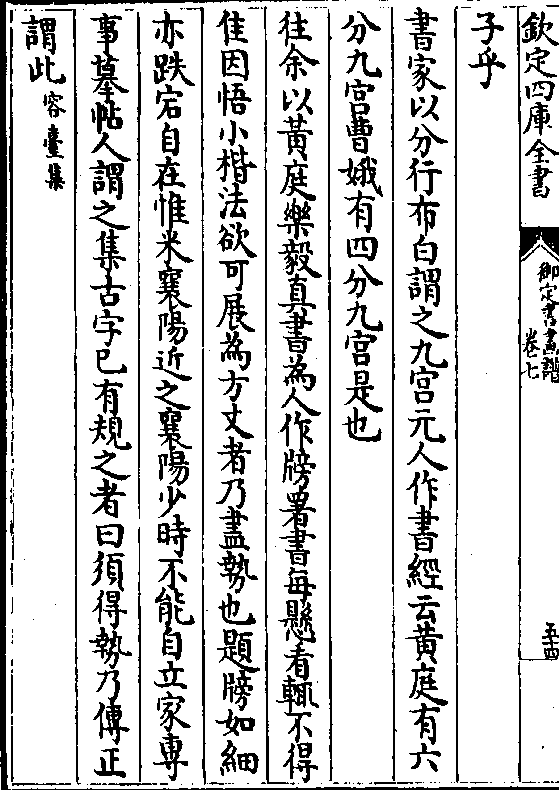 欽定四庫全書
御定書畫譜
卷七
五十四
子乎
書家以分行布白謂之九宫元人作書經云黄庭有六
分九宫曹娥有四分九宫是也
往余以黄庭樂毅真書為人作牓署書每懸看輒不得
佳因悟小楷法欲可展為方丈者乃盡勢也題牓如細
亦跌宕自在惟米襄陽近之襄陽少時不能自立家專
事摹帖人謂之集古字已有規之者曰須得勢乃傳正
謂此 容臺集